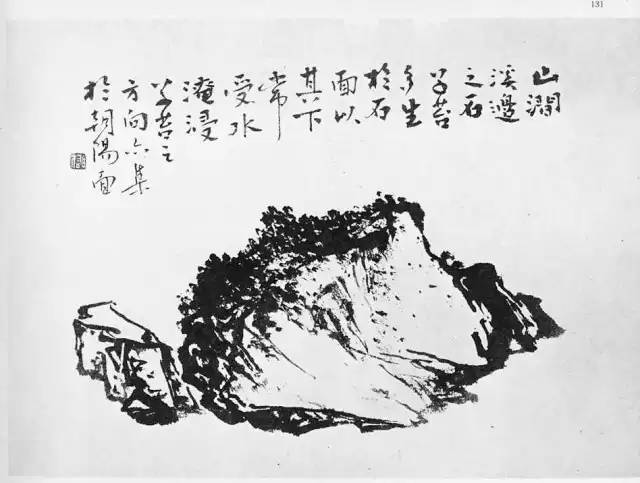 131
山澗
溪邊
之石
苔
多生
於石
面以
其下
常
受水
淹浸
苔之
方向亦集
於朝陽面